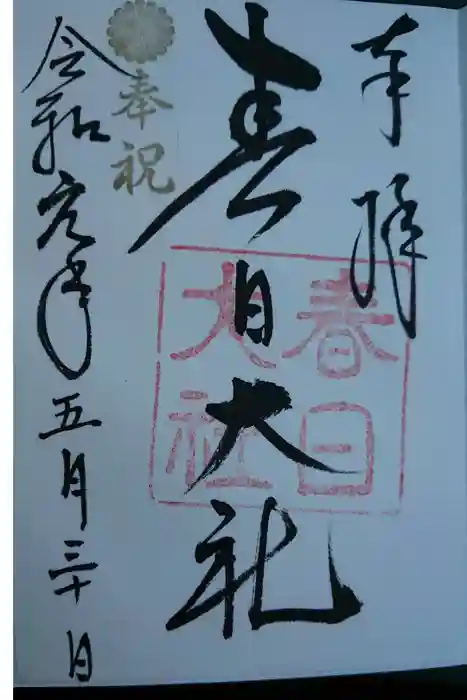 奉拝
春日大社
春日
大社
奉祝
令和元年五月三十日